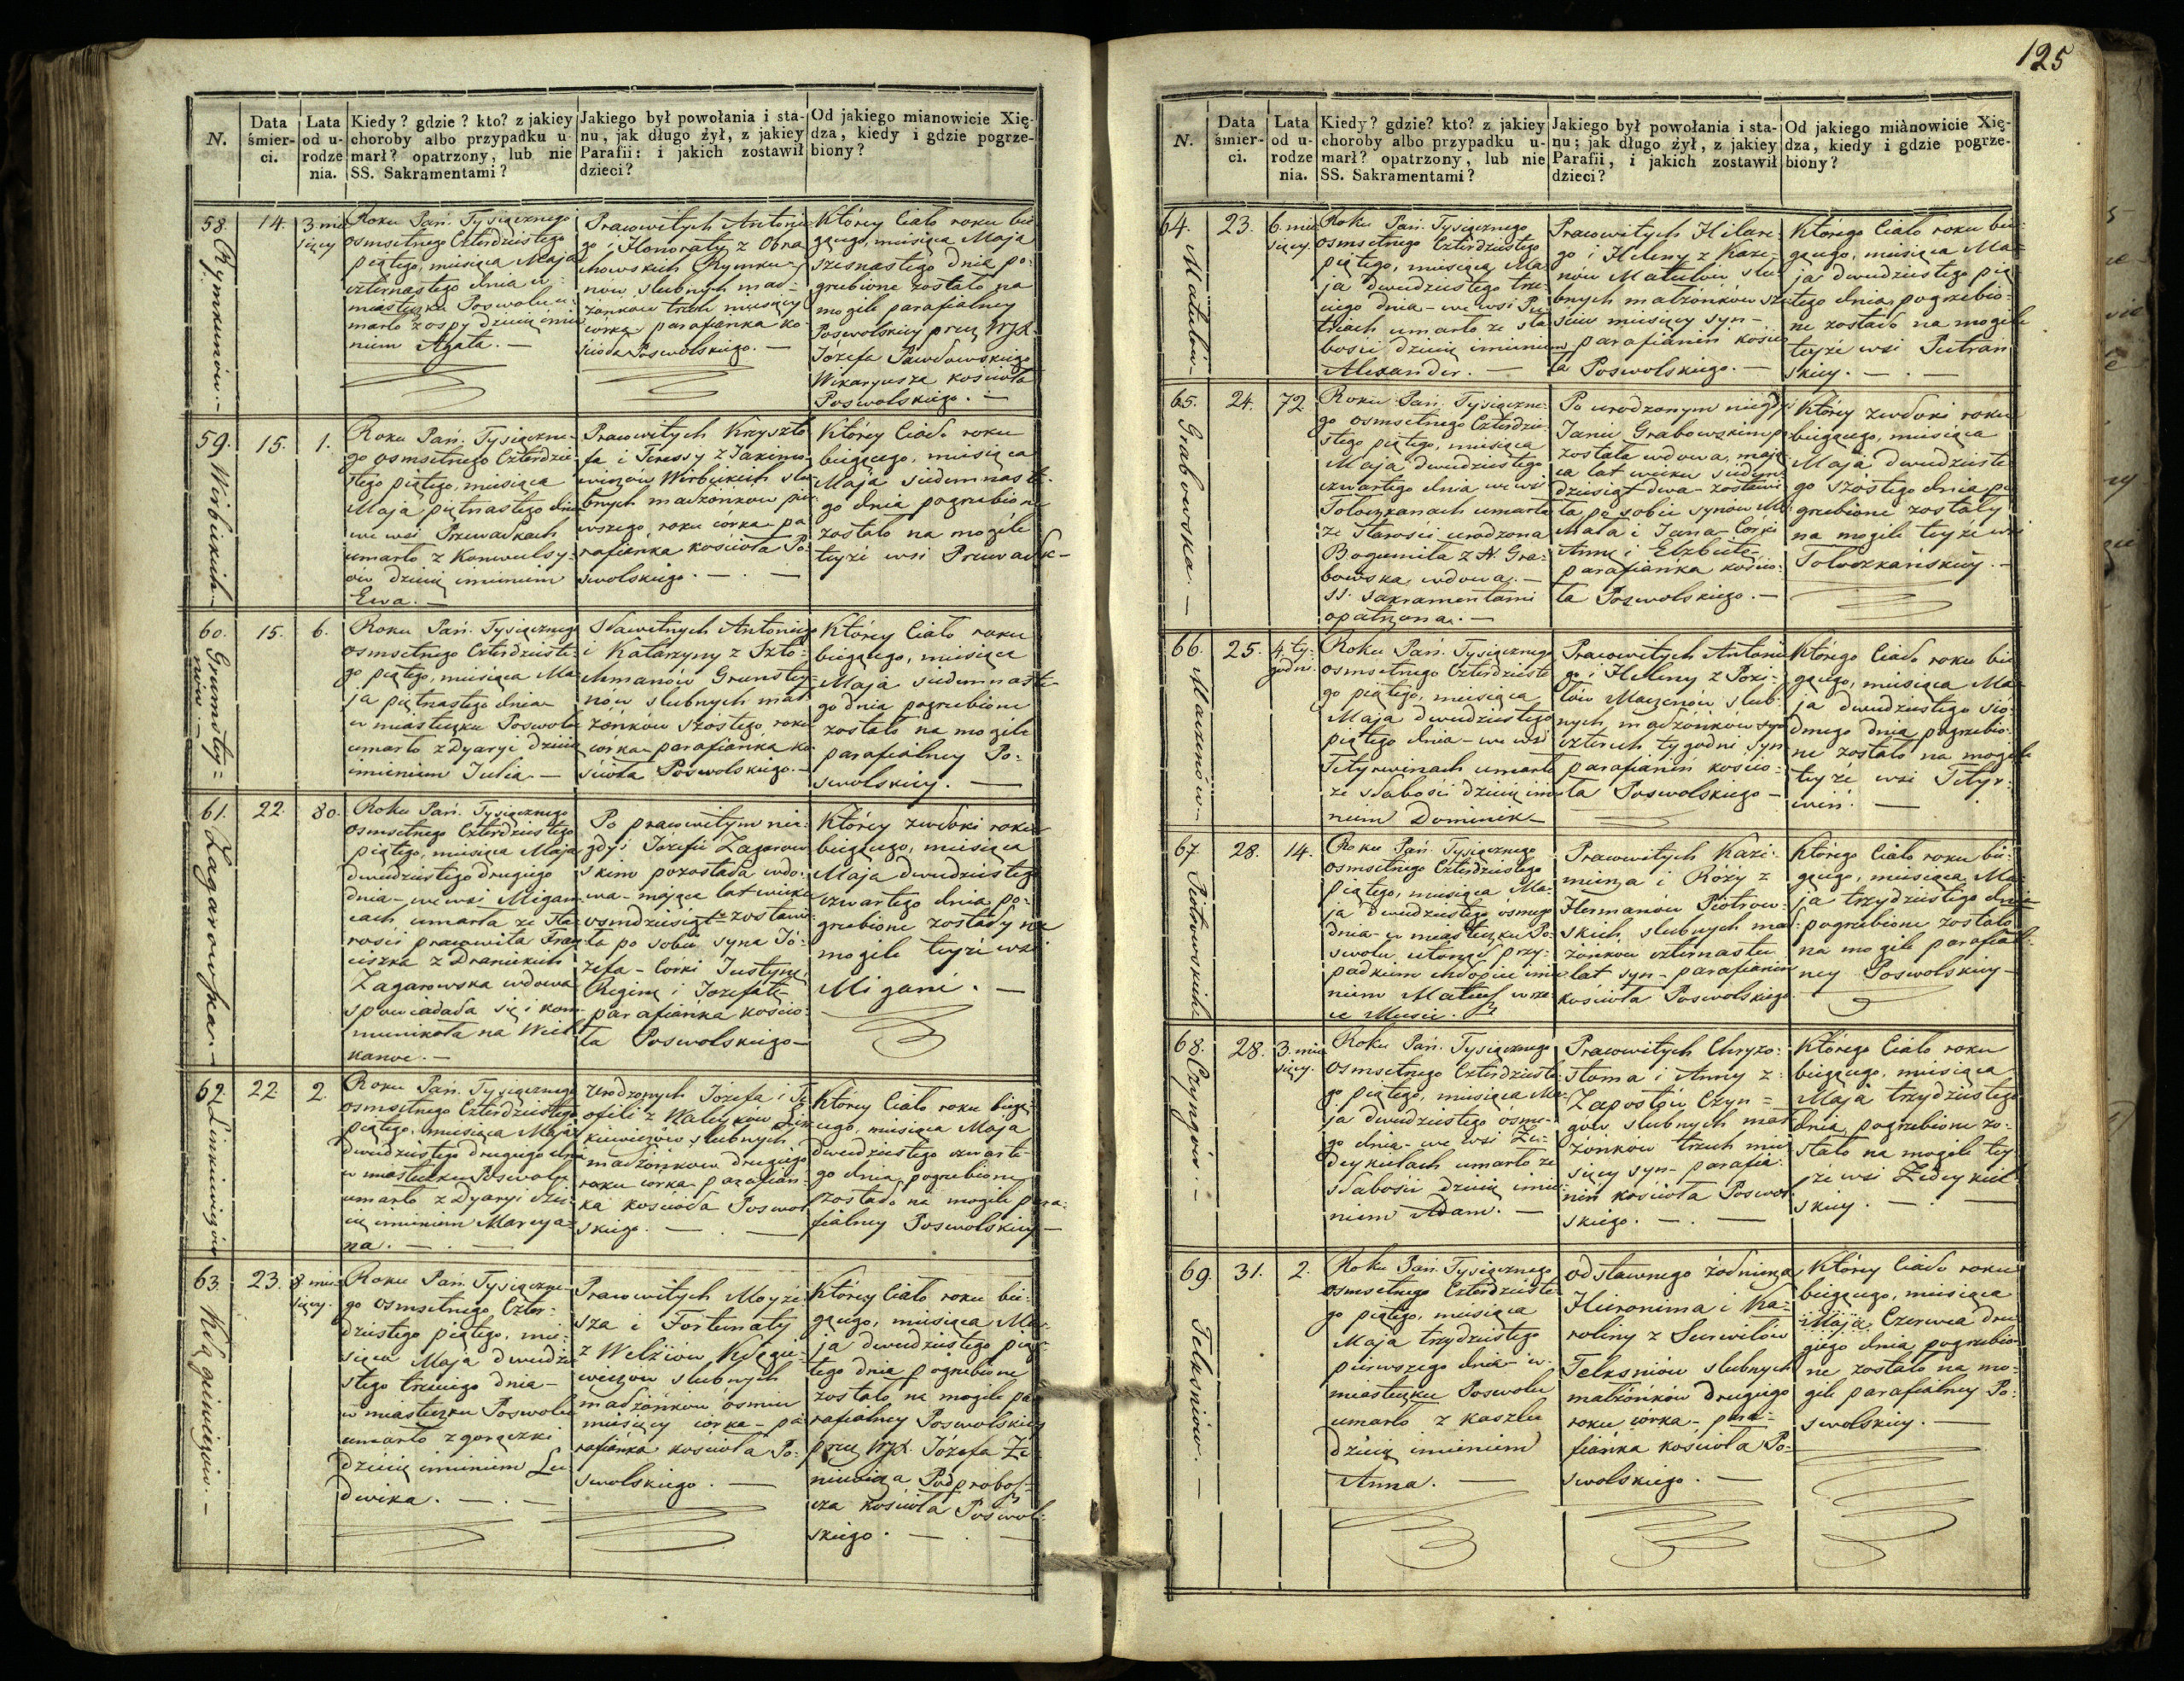 125
N.
Data śmierci.
Lata od urodzenia.
Kiedy? gdzie? kto? z jakiey
choroby albo przypadku u-
marł? opatrzony, lub nie
SS. Sakramentami?
Jakiego był powołania i sta-
nu, jak długo żył, z jakiey
Parafii: i jakich zostawił
dzieci?
Od jakiego mianowicie Xię-
dza, kiedy i gdzie pogrze-
biony?
58.
Rymkunów. —
14.
3 mie
sięcy
Roku Pań. Tysiącznego
osmsetnego Czterdziestego
piątego, miesiąca Maja
czternastego dnia w
miasteczku Poswolu u
marło z ospy dziecię imie
niem Agata. —
Pracowitych Antonie
go i Honoraty z
Rymku=
now slubnych mał-
żonków trzech miesięcy
corka parafianka ko
scioła Poswolskiego. —
Którey Ciało roku bie
gącego, miesiąca Maja
szesnastego dnia po-
grzebione zostało na
mogile parafialney
Poswolskiey przez WJX.
Józefa Pawłowskiego
Wikaryusza kościoła
Poswolskiego. —
59.
Wirbickich. —
15.
1.
Roku Pań. Tysiączne-
go osmsetnego Czterdzie
stego piątego, miesiąca
Maja piętnastego dnia
we wsi Przewałkach
umarło z Konwulsy-
ow dziecię imieniem
Ewa. —
Pracowitych Krzyszto
fa i Teressy z Jakimo
wiczów Wirbickich slu
bnych małżonkow pie
wszego roku córka pa
rafianka kościoła Po-
swolskiego. — . —
Którey Ciało roku
bieżącego, miesiąca
Maja siedemnaste
go dnia pogrzebione
zostało na mogile
teyże wsi
60.
15.
6.
Roku Pań. Tysiącznego
osmsetnego Czterdzieste-
go piątego, miesiąca Ma
ja piętnastego dnia
w miasteczku Poswolu
umarło z Dyaryi dziecię
imieniem Julia —
Sławetnych Antoniego
i Katarzyny z Szto-
chmanów
nów slubnych mał
żonków szóstego roku
corka parafianka ko
ścioła Poswolskiego. —
Którey Ciało roku
bieżącego, miesiąca
Maja siedemnaste
go dnia pogrzebione
zostało na mogile
parafialney Po-
swolskiey. —
61.
Zagarowska —
22.
80.
Roku Pań. Tysiącznego
osmsetnego Czterdziestego
piątego, miesiąca Maja
dwudziestego drugiego
dnia — we wsi Migan
cach umarła ze sta
rości pracowita Fran
ciszka z Dranickich
Zagarowska wdowa
spowiadała się i kom
munikała na Wiel
kanoc. —
Po pracowitym nie-
gdyś Józefie Zagarow
skim pozostała wdo-
wa — mająca lat wieku
osmdziesiąt — zostawi
ła po sobie syna Jó-
zefa — Córki Justynę
Reginę i Jozefatę
parafianka kościo-
ła Poswolskiego —
Którey zwłoki roku
bieżącego, miesiąca
Maja dwudziestego
czwartego dnia po-
grzebione zostały na
mogile teyże wsi
Migani. —
62.
Linkiewiczów
22
2.
Roku Pań. Tysiącznego
osmsetnego Czterdziestego
piątego, miesiąca Maja
dwudziestego drugiego dnia
w miasteczku Poswolu
umarło z Dyaryi dzie-
cię imieniem Marcya-
na. — . —
Urodzonych Józefa i Te
ofili z Walickow Lin
kiewiczów slubnych
małżonkow drugiego
roku corka parafian-
ka kościoła Poswol
skiego. — . —
Którey Ciało roku bieżą-
cego, miesiąca Maja
dwudziestego czwarte-
go dnia pogrzebione
zostało na mogile para-
fialney Poswolskiey —
63.
23.
8. mie
sięcy.
Roku Pań. Tysiączne-
go osmsetnego Czter-
dziestego piątego, mie-
siąca Maja dwudzie
stego trzeciego dnia —
w miasteczku Poswolu
umarło z gorączki
dziecię imieniem Lu
dwika. — . —
Pracowitych Moyże
sza i Fortunaty
z Welżiow
wiczow slubnych
małżonkow ósmiu
miesięcy córka — pa
rafianka kościoła Po-
swolskiego. —
Którey Ciało roku bie-
gącego, miesiąca Ma-
ja dwudziestego pią-
tego dnia pogrzebione
zostało na mogile pa
rafialney Poswolskiey
przez WJX. Józefa
Podprobosz-
cza kościoła Poswol-
skiego. — . —
N.
Data śmierci.
Lata od urodzenia.
Kiedy? gdzie? kto? z jakiey
choroby albo przypadku u-
marł? opatrzony, lub nie
SS. Sakramentami?
Jakiego był powołania i sta-
nu; jak długo żył, z jakiey
Parafii, i jakich zostawił
dzieci?
Od jakiego mianowicie Xię-
dza, kiedy i gdzie pogrze-
biony?
64.
Matulów —
23.
6. mie
sięcy.
Roku Pań. Tysiącznego
osmsetnego Czterdziestego
piątego, miesiąca Ma-
ja dwudziestego trze-
ciego dnia — we wsi Pu-
triach umarło ze sła
bości dziecię imieniem
Alexander. —
Pracowitych Hilare-
go i Heleny z Kaze-
now Matulow slu
bnych małżonków sze
ściu miesięcy syn —
parafianin koscio
ła Poswolskiego. —
Którego Ciało roku bie-
gącego, miesiąca Ma-
ja dwudziestego pią
tego dnia pogrzebio-
ne zostało na mogile
teyże wsi Putrań
skiey. — . —
65.
Grabowska. —
24.
72
Roku Pań. Tysiączne-
go osmsetnego Czterdzie-
stego piątego, miesiąca
Maja dwudziestego
czwartego dnia we wsi
Toloczkanach umarła
ze starości urodzona
Bogumila z N. Gra-
bowska wdowa. —
SS. Sakramentami
opatrzona. —
Po urodzonym niegdyś
Janie Grabowskim po
została wdowa, mają
ca lat wieku siedem
dziesiąt dwa — zostawi
ła po sobie synow Mi
chała i Jana — Corki
Annę i Elzbietę —
parafianka kościo-
ła Poswolskiego. —
Którey zwłoki roku
bieżącego, miesiąca
Maja dwudzieste
go szóstego dnia po
grzebione zostały
na mogile teyże wsi
Toloczkańskiey. —
66.
Maczenów —
25.
4. ty-
godni.
Roku Pań. Tysiącznego
osmsetnego Czterdzieste
go piątego, miesiąca
Maja dwudziestego
piątego dnia — we wsi
Tetyrwinach umarło
ze słabości dziecię imie
niem Dominik —
Pracowitych Antonie
go i Heleny z Pozi-
low Maczenów slub-
nych małżonkow
czterech tygodni syn
parafianin koscio-
ła Poswolskiego —
Którego Ciało roku bie
gącego, miesiąca Ma-
ja dwudziestego sio-
dmego dnia pogrzebio-
ne zostało na mogile
teyże wsi Tetyr-
win. —
67
Piotrowskich
28.
14.
Roku Pań. Tysiącznego
osmsetnego Czterdziestego
piątego, miesiąca Ma-
ja dwudziestego ósmego
dnia — w miasteczku Po-
swolu utonął przy-
padkiem chłopiec imie
niem Mateusz w rze-
ce Musie.
Pracowitych Kazi-
mierza i Rozy z
Hermanow Piotrow-
skich, slubnych mał-
żonkow czternastu
lat syn — parafianin
kościoła Poswolskiego.
Którego Ciało roku bie-
gącego, miesiąca Ma-
ja trzydziestego dnia
pogrzebione zostało
na mogile parafial-
ney Poswolskiey —
68.
Czyngów. —
28.
3. mie
sięcy.
Roku Pań. Tysiącznego
osmsetnego Czterdzieste
go piątego, miesiąca Ma-
ja dwudziestego ósme-
go dnia — we wsi Że-
deykielach umarło ze
słabości dziecię imie-
niem Adam. —
Pracowitych Chryzo-
stoma i Anny z
Zapostow Czyn=
gow slubnych mał
żonkow trzech mie
sięcy syn — parafia-
nin kościoła Poswol
skiego. — . —
Którego Ciało roku
bieżącego, miesiąca
Maja trzydziestego
dnia, pogrzebione zo-
stało na mogile tey-
że wsi Żedeykiel
skiey. —
69.
Telksniów. —
31.
2.
Roku Pań. Tysiącznego
osmsetnego Czterdzieste
go piątego, miesiąca
Maja trzydziestego
pierwszego dnia — w
miasteczku Poswolu
umarło z kaszlu
dziecię imieniem
Anna. —
Odstawnego żołnierza
Hieronima i Ka-
roliny z Surwilów
Telksniów slubnych
małżonków drugiego
roku corka — para-
fianka kościoła Po-
swolskiego. —
Którey Ciało roku
bieżącego, miesiąca
Maja Czerwca dru
giego dnia pogrzebio
ne zostało na mo-
gile parafialney Po-
swolskiey. —